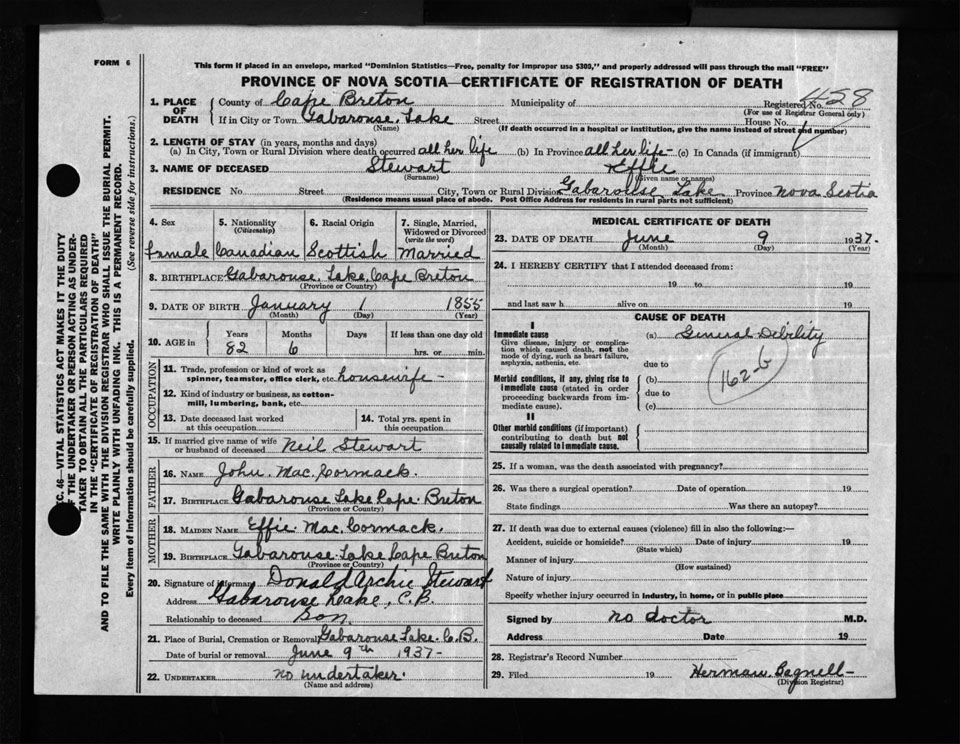 FORM 6
This form if placed in an envelope, marked "Dominion Statistics—Free, penalty for improper use $300," and properly addressed will pass through the mail "FREE"
PROVINCE OF NOVA SCOTIA—CERTIFICATE OF REGISTRATION OF DEATH
1. PLACE OF DEATH
County of Cape Breton Municipality of Registered No. 428
(For use of Registrar General only)
If in City or Town Gabarouse Lake Street House No.
(Name) (If death occurred in a hospital or institution, give the name instead of street and number)
2. LENGTH OF STAY (in years, months and days)
(a) In City, Town or Rural Division where death occurred all her life (b) In Province all her life - (c) In Canada (if immigrant)
3. NAME OF DECEASED Stewart Effie
(Surname) (Given name or names)
RESIDENCE No. Street City, Town or Rural Division Gabarouse Lake Province Nova Scotia
(Residence means usual place of abode. Post Office Address for residents in rural parts not sufficient)
4. Sex 5. Nationality (Citizenship) 6. Racial Origin 7. Single, Married, Widowed or Divorced (write the word)
Female Canadian Scottish Married
8. BIRTHPLACE Gabarouse Lake, Cape Breton
(Province or Country)
9. DATE OF BIRTH January 1 1855
(Month) (Day) (Year)
10. AGE in Years Months Days If less than one day old
82 6 hrs. or min.
OCCUPATION
11. Trade, profession or kind of work as spinner, teamster, office clerk, etc. housewife -
12. Kind of industry or business, as cotton-mill, lumbering, bank, etc.
13. Date deceased last worked at this occupation 14. Total yrs. spent in this occupation
15. If married give name of wife or husband of deceased Neil Stewart
FATHER
16. NAME John Mac Cormack
17. BIRTHPLACE Gabarouse Lake Cape Breton
(Province or Country)
MOTHER
18. MAIDEN NAME Effie Mac Cormack.
19. BIRTHPLACE Gabarouse Lake Cape Breton
(Province or Country)
20. Signature of informant Donald Archie Stewart
Address Gabarouse Leake, C.B.
Relationship to deceased Son.
21. Place of Burial, Cremation or Removal Gabarouse Lake C.B.
Date of burial or removal June 9th 1937-
22. UNDERTAKER no undertaker.
(Name and address)
MEDICAL CERTIFICATE OF DEATH
23. DATE OF DEATH June 9 1937.
(Month) (Day) (Year)
24. I HEREBY CERTIFY that I attended deceased from:
19 to 19
and last saw h alive on 19
CAUSE OF DEATH
I
Immediate cause (a) General Debility
Give disease, injury or complication which caused death, not the mode of dying, such as heart failure, asphyxia, asthenia, etc.
due to
162-b
Morbid conditions, if any, giving rise to immediate cause (stated in order proceeding backwards from immediate cause).
(b)
due to
(c)
II
Other morbid conditions (if important) contributing to death but not causally related to immediate cause.
25. If a woman, was the death associated with pregnancy?
26. Was there a surgical operation? Date of operation 19
State findings Was there an autopsy?
27. If death was due to external causes (violence) fill in also the following:—
Accident, suicide or homicide? Date of injury 19
(State which)
Manner of injury
(How sustained)
Nature of injury
Specify whether injury occurred in industry, in home, or in public place
Signed by no doctor M.D.
Address Date 19
28. Registrar's Record Number
29. Filed 19 Herman Bagnell-
(Division Registrar)
46—VITAL STATISTICS ACT MAKES IT THE DUTY
THE UNDERTAKER OR PERSON ACTING AS UNDER-
TAKER TO OBTAIN ALL THE PARTICULARS REQUIRED
IN THE "CERTIFICATE OF REGISTRATION OF DEATH"
AND TO FILE THE SAME WITH THE DIVISION REGISTRAR WHO SHALL ISSUE THE BURIAL PERMIT.
WRITE PLAINLY WITH UNFADING INK. THIS IS A PERMANENT RECORD.
Every item of information should be carefully supplied. (See reverse side for instructions.)